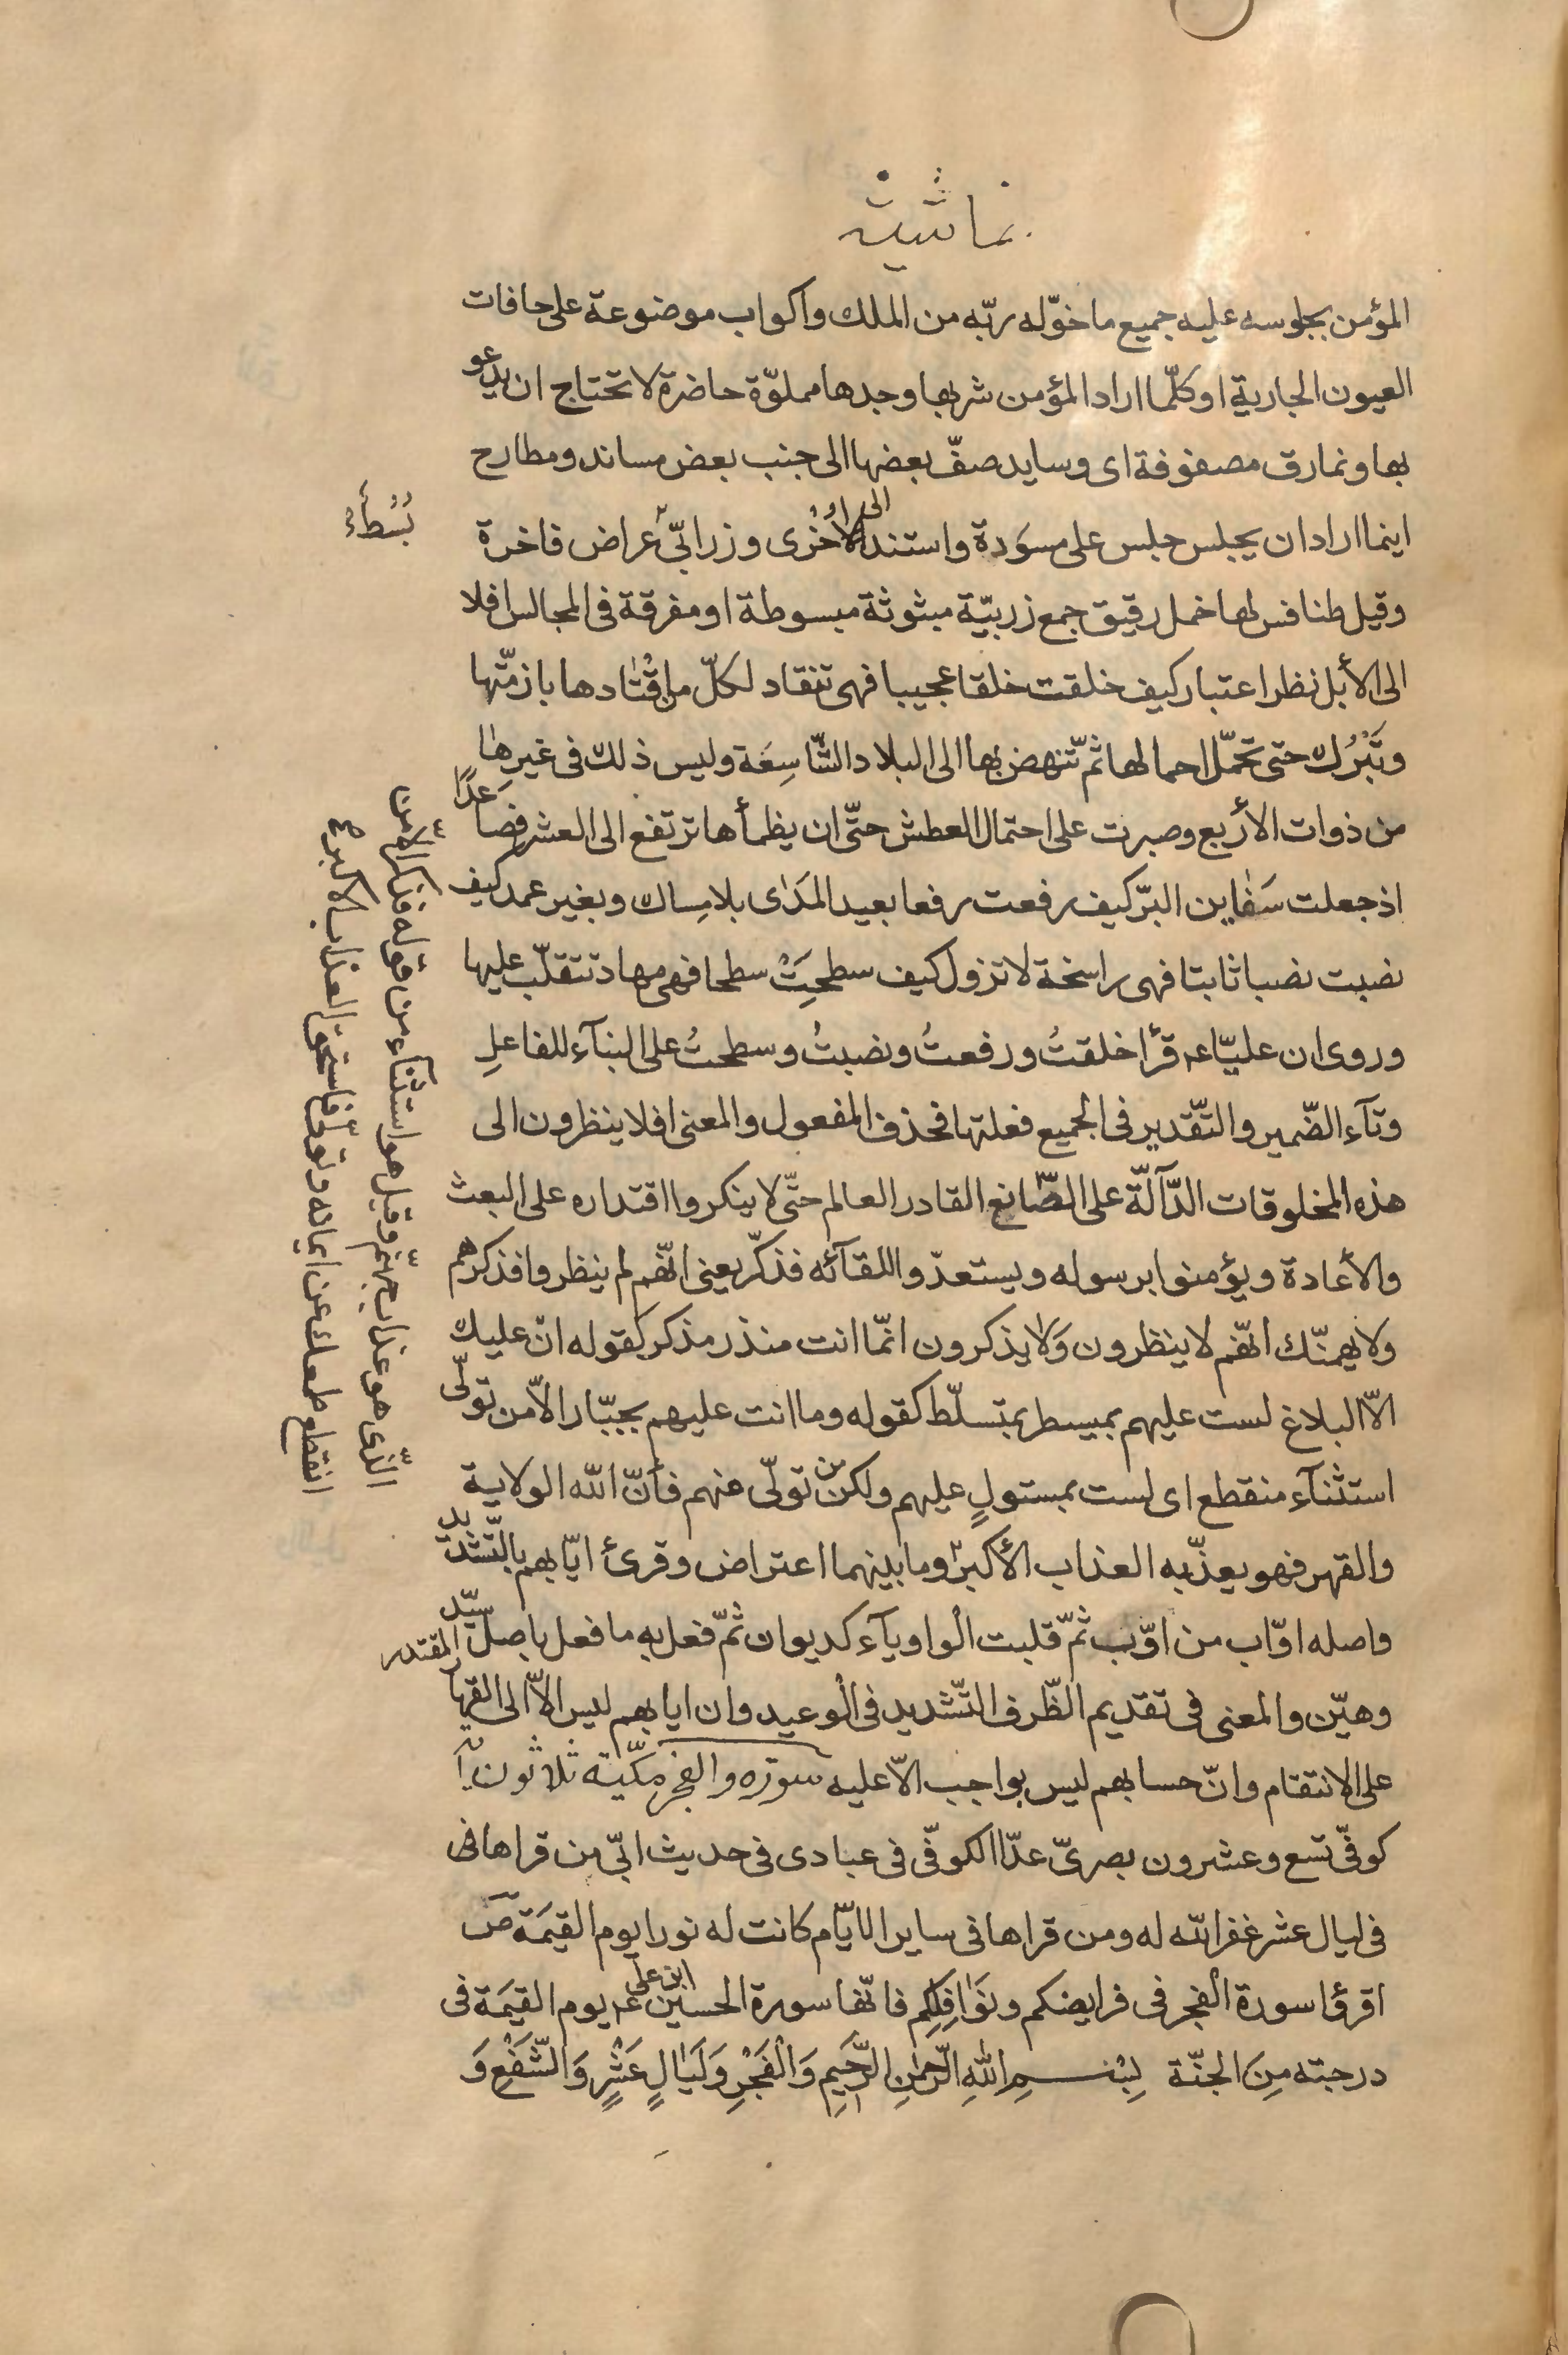 المؤمن بجلوسه عليه جميع ما خوّله ربّه من الملك واكواب موضوعة على حافات
العيون الجارية او كلّما اراد المؤمن شربها وجدها مملوّة حاضرة لا تحتاج ان يدعو
بها ونمارق مصفوفة اى وسايد صفّ بعضها الى جنب بعض مساند ومطارح
اينما اراد ان يجلس جلس على مسوَدة واستند الى الاخرى وزرابّى عراض فاخرة
بُسُط
وقيل طنافس لها خمل رقيق جمع زربيّة مبثوثة مبسوطة او مفرقة فى المجالس افلا
الى الأبل نظر اعتبار كيف خلقت خلقا عجيبا فهى تنقاد لكلّ من اقتادها بازمّتها
وتَبْرُك حتى تحمّل احمالها ثمّ تنهض بها الى البلاد الشّاسِعَة وليس ذلك فى غيرِها
من ذوات الأربع وصبرت على احتمال العطش حتّى ان يظمأها ترتفع الى العشر فصاعدًا
اذ جعلت سَفاين البرّ كيف رفعت رفعا بعيد المَدَاى بلا مِساك وبغير عمد كيف
نصبت نصبا ثابتا فهى راسخة لا تزول كيف سطحِتْ سطحا فهى مهاد تتقلّب عليها
وروى ان عليّا عه قرأ خلقتُ ورفعتُ ونصبتُ وسطحتُ على البنآء للفاعلِ
وتآء الضّمير والتّقدير فى الجميع فعلتها فحذف المفعول والمعنى افلا ينظرون الى
هذه المخلوقات الدّآلّة على الصّانع القادر العالم حتّى لا ينكروا اقتداره على البعث
والأعادة ويؤمنوا برسوله ويستعدّوا للقآئه فذكّر يعنى انّهم لم ينظروا فذكرهم
ولا يهمنّك انّهم لا ينظرون وَلا يذكرون انّما انت منذر مذكر كقوله انّ عليك
الاّ البلاغ لست عليهم بمسيطر بمتسلّط كقوله وما انت عليهم بجبّار الاّ من تولّى
استثنآء منقطع اى لست بمستولٍ عليهم ولكن من تولّى منهم فأنّ الله الولاية
والقهر فهو يعذّبه العذاب الأكبر وما بينهما اعتراض وقرئ ايّابهم بالتّشديد
واصله اوّاب من اوّب ثمّ قلبت الواو يآء كديوان ثمّ فعل به ما فعل باصل سيّد
وهيّن والمعنى فى تقديم الظّرف التّشديد فى الْوعيد وان ايابهم ليس الاّ الى القهار المقتدر
على الانتقام وانّ حسابهم ليس بواجب الاّ عليه سورة والفجر مكّيّة ثلاثون آ
كوفّى تسع وعشرون بصرىّ عدّا الكوفّى فى عبادى فى حديث ابّى من قراها فى
فى ليال عشر غفر الله له ومن قراها فى ساير الايّام كانت له نورا يوم القيمَة ص
اقرؤا سورة الفجر فى فرايضكم ونَوَافِلِكم فانّها سورة الحسين ابن على عه يوم القيمَة فى
درجته مِنَ الجنّة بِسْمِ اللهِ الرَّحمٰنِ الرَّحِيمِ وَالْفَجْرِ وَلَيَالٍ عَشْرٍ وَالشَّفْعِ وَ
الّذى هو عذاب جهنّم وقيل هو استثنآء من قوله فذكر الاّ من
انقطع طمعك عن ايمانه وتولّى فاستحق العذاب الاكبر